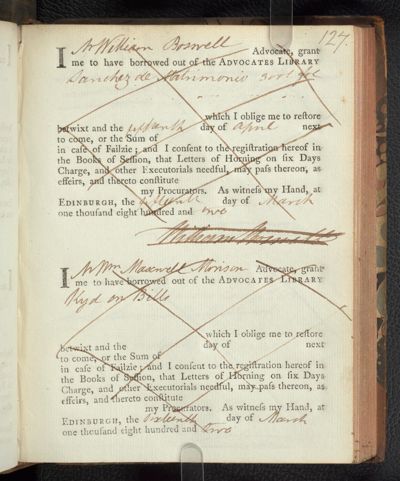 127.
I Mr William Boswell Advocate, grant
me to have borrowed out of the ADVOCATES LIBRARY
Sanchez de Matrimonio
which I oblige me to reſtore
betwixt and the day of April next
to come, or the Sum of
in caſe of Failzie; and I conſent to the regiſtration hereof in
the Books of Seſſion, that Letters of Horning on ſix Days
Charge, and other Executorials needful, may paſs thereon, as
effeirs, and thereto conſtitute
my Procurators. As witneſs my Hand, at
EDINBURGH, the day of March
one thouſand eight hundred and two
William Boswell
I Mr Wm Maxwell Morison Advocate, grant
me to have borrowed out of the ADVOCATES LIBRARY
Kyd on Bills
which I oblige me to reſtore
betwixt and the day of next
to come, or the Sum of
in caſe of Failzie; and I conſent to the regiſtration hereof in
the Books of Seſſion, that Letters of Horning on ſix Days
Charge, and other Executorials needful, may paſs thereon, as
effeirs, and thereto conſtitute
my Procurators. As witneſs my Hand, at
EDINBURGH, the Sixteenth day of March
one thouſand eight hundred and Two